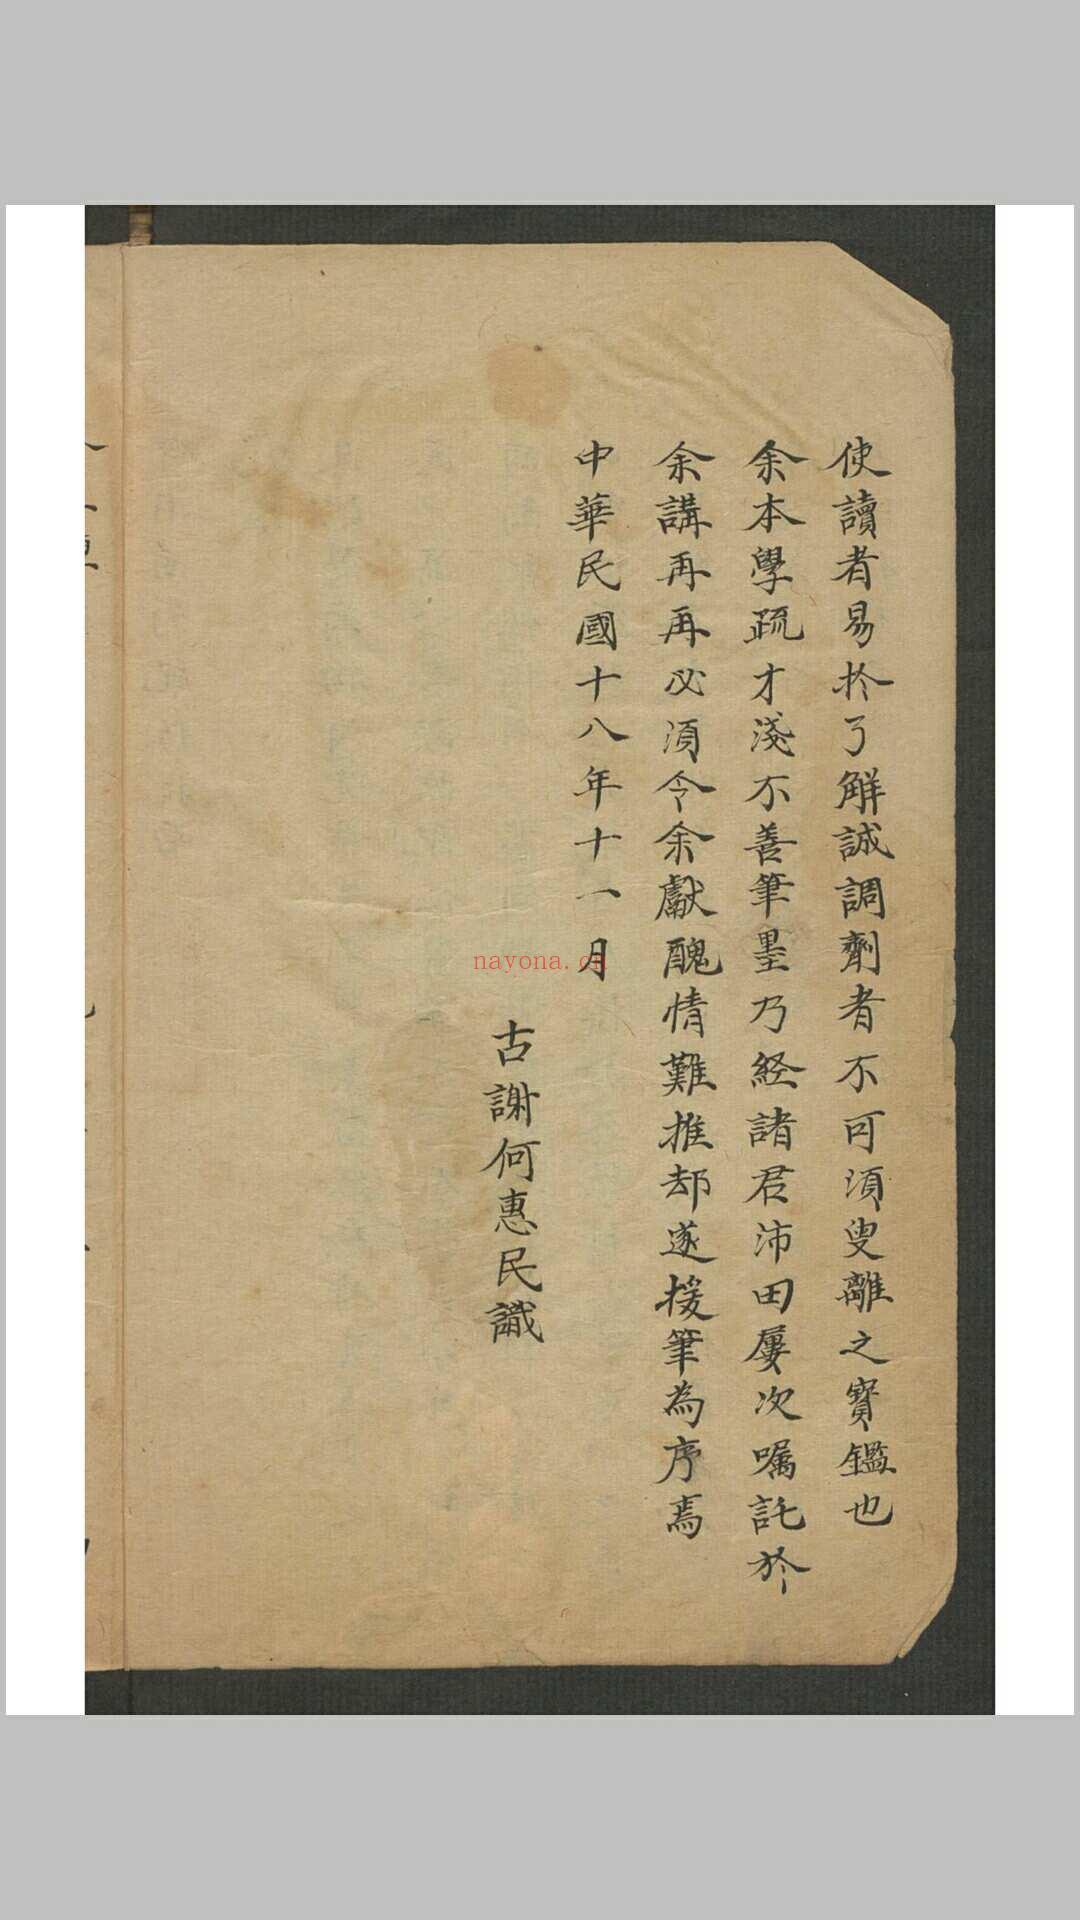 使讀者易扵了解誠調劑者不可湏叟離之寳鑑也
余本學疏才淺不善筆墨乃経諸君沛田屢次嘱託於
余講再再必湏令余獻醜情難推却遂援筆為序焉
中華民國十八年十一月
古謝何惠民識
nayona.cn